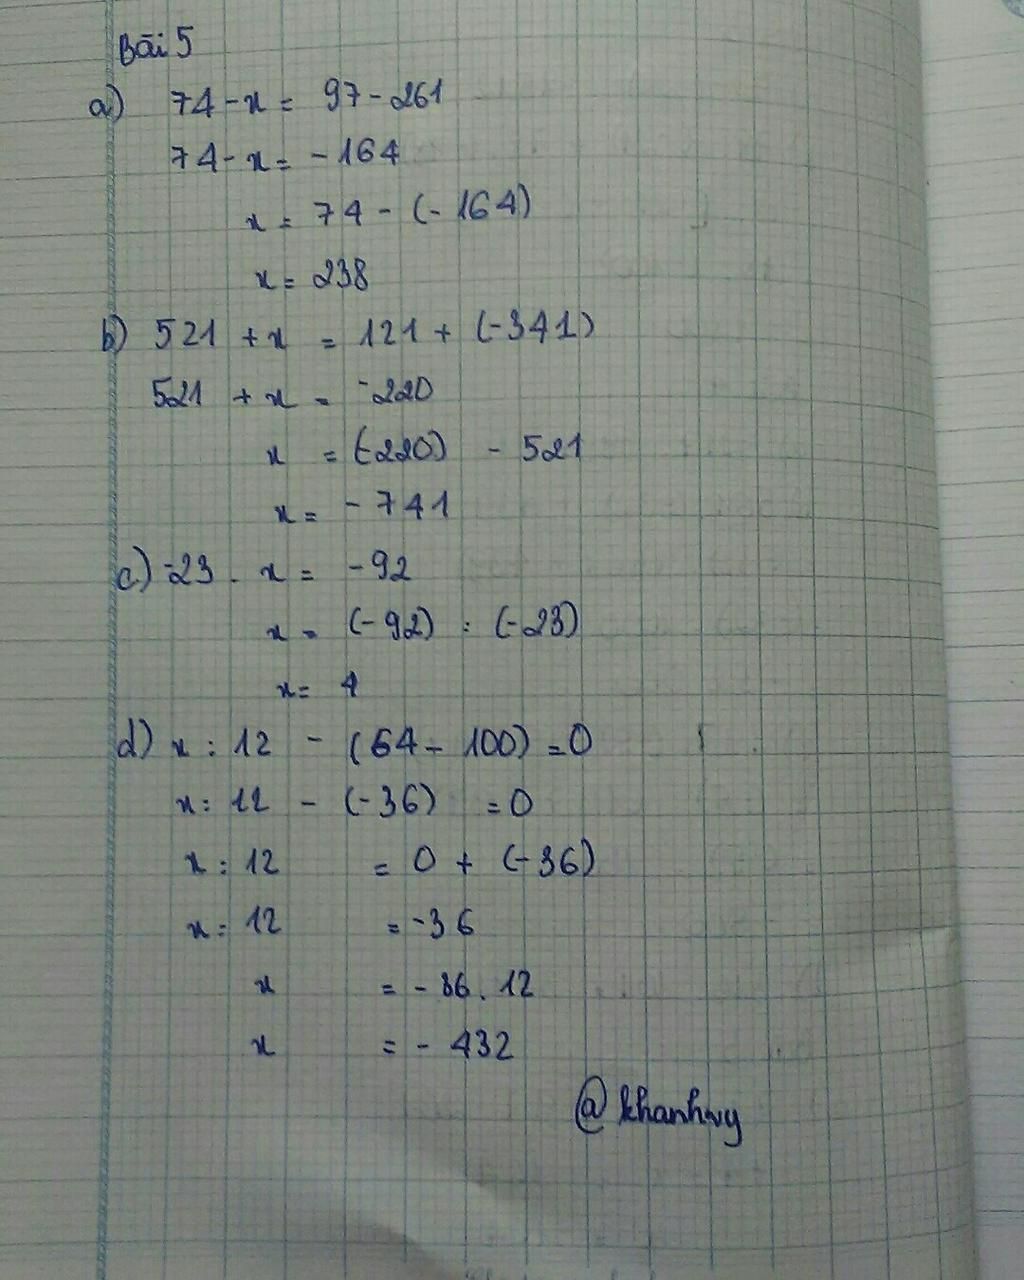 Bài 5
a) 74 - x = 97 - 261
74 - x = - 164
x = 74 - (- 164)
x = 238
b) 521 + x = 121 + (-341)
521 + x = -220
x = (-220) - 521
x = - 741
c) -23 . x = -92
x = (- 92) : (-23)
x = 4
d) x : 12 - (64 - 100) = 0
x : 12 - (-36) = 0
x : 12 = 0 + (-36)
x : 12 = -36
x = - 36 . 12
x = - 432
@ khanhvy